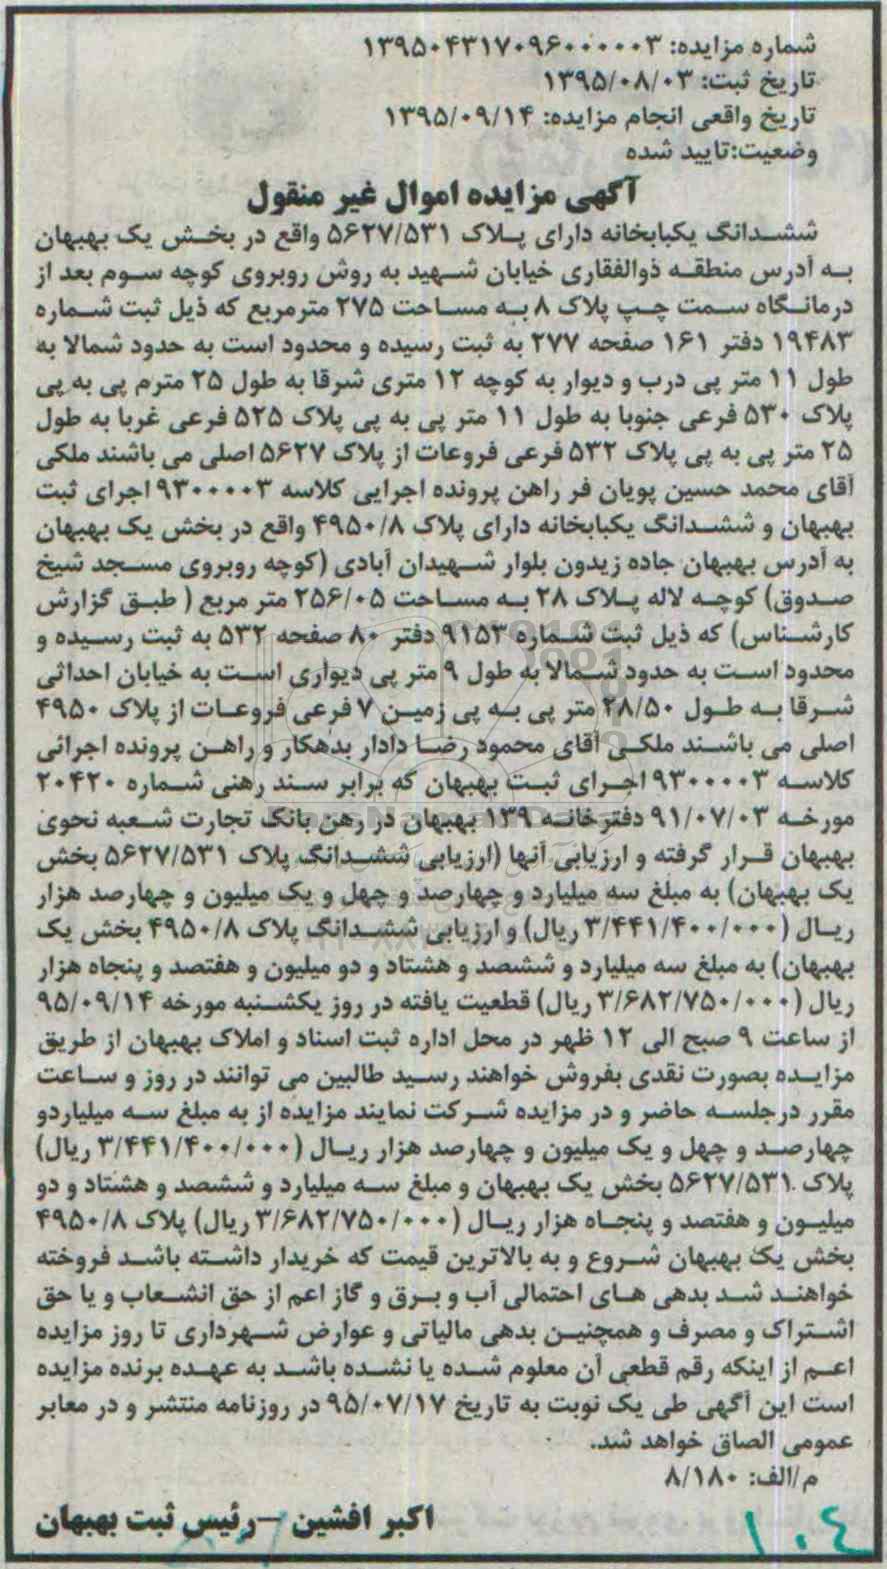 شماره مزایده: ۱۳۹۵۰۴۳۱۷۰۹۶۰۰۰۰۰۳
تاریخ ثبت: ۱۳۹۵/۰۸/۰۳
تاریخ واقعی انجام مزایده: ۱۳۹۵/۰۹/۱۴
وضعیت:تایید شده
آگهی مزایده اموال غیر منقول
ششدانگ یکبابخانه دارای پلاک ۵۶۲۷/۵۳۱ واقع در بخش یک بهبهان
به آدرس منطقه ذوالفقاری خیابان شهید به روش روبروی کوچه سوم بعد از
درمانگاه سمت چپ پلاک ۸ به مساحت ۲۷۵ مترمربع که ذیل ثبت شماره
۱۹۴۸۳ دفتر ۱۶۱ صفحه ۲۷۷ به ثبت رسیده و محدود است به حدود شمالا به
طول ۱۱ متر پی درب و دیوار به کوچه ۱۲ متری شرقا به طول ۲۵ مترم پی به پی
پلاک ۵۳۰ فرعی جنوبا به طول ۱۱ متر پی به پی پلاک ۵۲۵ فرعی غربا به طول
۲۵ متر پی به پی پلاک ۵۳۲ فرعی فروعات از پلاک ۵۶۲۷ اصلی می باشند ملکی
آقای محمد حسین پویان فر راهن پرونده اجرایی کلاسه ۹۳۰۰۰۰۳ اجرای ثبت
بهبهان و ششدانگ یکبابخانه دارای پلاک ۴۹۵۰/۸ واقع در بخش یک بهبهان
به آدرس بهبهان جاده زیدون بلوار شهیدان آبادی (کوچه روبروی مسجد شیخ
صدوق) کوچه لاله پلاک ۲۸ به مساحت ۲۵۶/۰۵ متر مربع ( طبق گزارش
کارشناس) که ذیل ثبت شماره ۹۱۵۳ دفتر ۸۰ صفحه ۵۳۲ به ثبت رسیده و
محدود است به حدود شمالا به طول ۹ متر پی دیواری است به خیابان احداثی
شرقا به طول ۲۸/۵۰ متر پی به پی زمین ۷ فرعی فروعات از پلاک ۴۹۵۰
اصلی می باشند ملکی آقای محمود رضا دادار بدهکار و راهن پرونده اجرائی
کلاسه ۹۳۰۰۰۰۳ اجرای ثبت بهبهان که برابر سند رهنی شماره ۲۰۴۲۰
مورخه ۹۱/۰۷/۰۳ دفترخانه ۱۳۹ بهبهان در رهن بانک تجارت شعبه نحوی
بهبهان قرار گرفته و ارزیابی آنها (ارزیابی ششدانگ پلاک ۵۶۲۷/۵۳۱ بخش
یک بهبهان) به مبلغ سه میلیارد و چهارصد و چهل و یک میلیون و چهارصد هزار
ریال (۳/۴۴۱/۴۰۰/۰۰۰ ریال) و ارزیابی ششدانگ پلاک ۴۹۵۰/۸ بخش یک
بهبهان) به مبلغ سه میلیارد و ششصد و هشتاد و دو میلیون و هفتصد و پنجاه هزار
ریال (۳/۶۸۲/۷۵۰/۰۰۰ ریال) قطعیت یافته در روز یکشنبه مورخه ۹۵/۰۹/۱۴
از ساعت ۹ صبح الی ۱۲ ظهر در محل اداره ثبت اسناد و املاک بهبهان از طریق
مزایده بصورت نقدی بفروش خواهند رسید طالبین می توانند در روز و ساعت
مقرر درجلسه حاضر و در مزایده شرکت نمایند مزایده از به مبلغ سه میلیاردو
چهارصد و چهل و یک میلیون و چهارصد هزار ریال (۳/۴۴۱/۴۰۰/۰۰۰ ریال)
پلاک ۵۶۲۷/۵۳۱ بخش یک بهبهان و مبلغ سه میلیارد و ششصد و هشتاد و دو
میلیون و هفتصد و پنجاه هزار ریال (۳/۶۸۲/۷۵۰/۰۰۰ ریال) پلاک ۴۹۵۰/۸
بخش یک بهبهان شروع و به بالاترین قیمت که خریدار داشته باشد فروخته
خواهند شد بدهی های احتمالی آب و برق و گاز اعم از حق انشعاب و یا حق
اشتراک و مصرف و همچنین بدهی مالیاتی و عوارض شهرداری تا روز مزایده
اعم از اینکه رقم قطعی آن معلوم شده یا نشده باشد به عهده برنده مزایده
است این آگهی طی یک نوبت به تاریخ ۹۵/۰۷/۱۷ در روزنامه منتشر و در معابر
عمومی الصاق خواهد شد.
م/الف: ۸/۱۸۰
اکبر افشین –رئیس ثبت بهبهان
۱۰۴